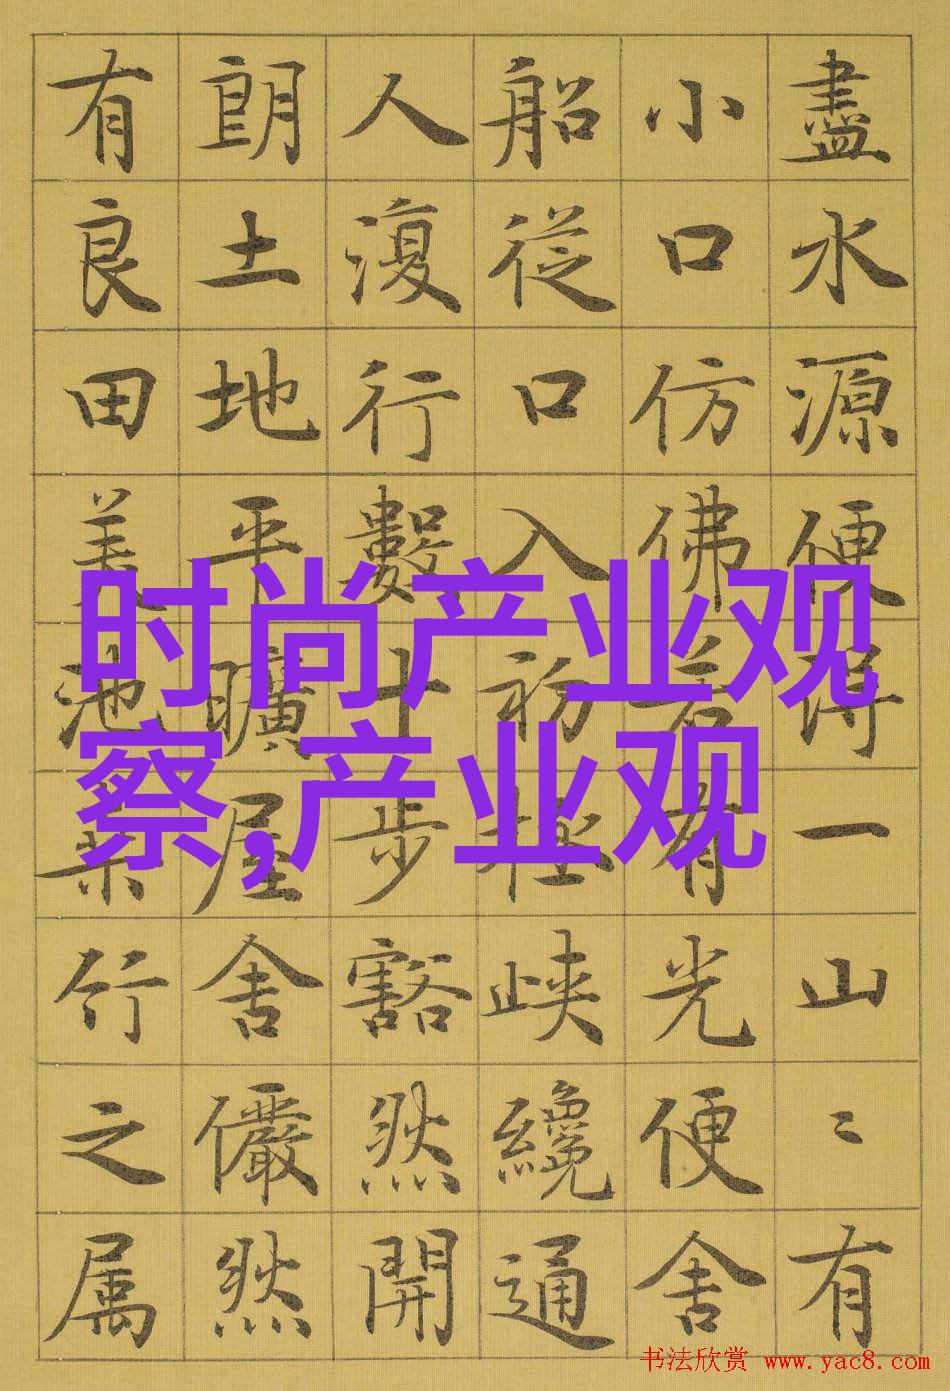 盡水源便得一山〻有
小口仿佛若有光便舍
船從口入初極峽纔通
人復行數十步豁然開
朗土地平曠屋舍儼然
有良田美池桑竹之属
时尚产业观
察,产业观
书法欣赏 www.yac8.com